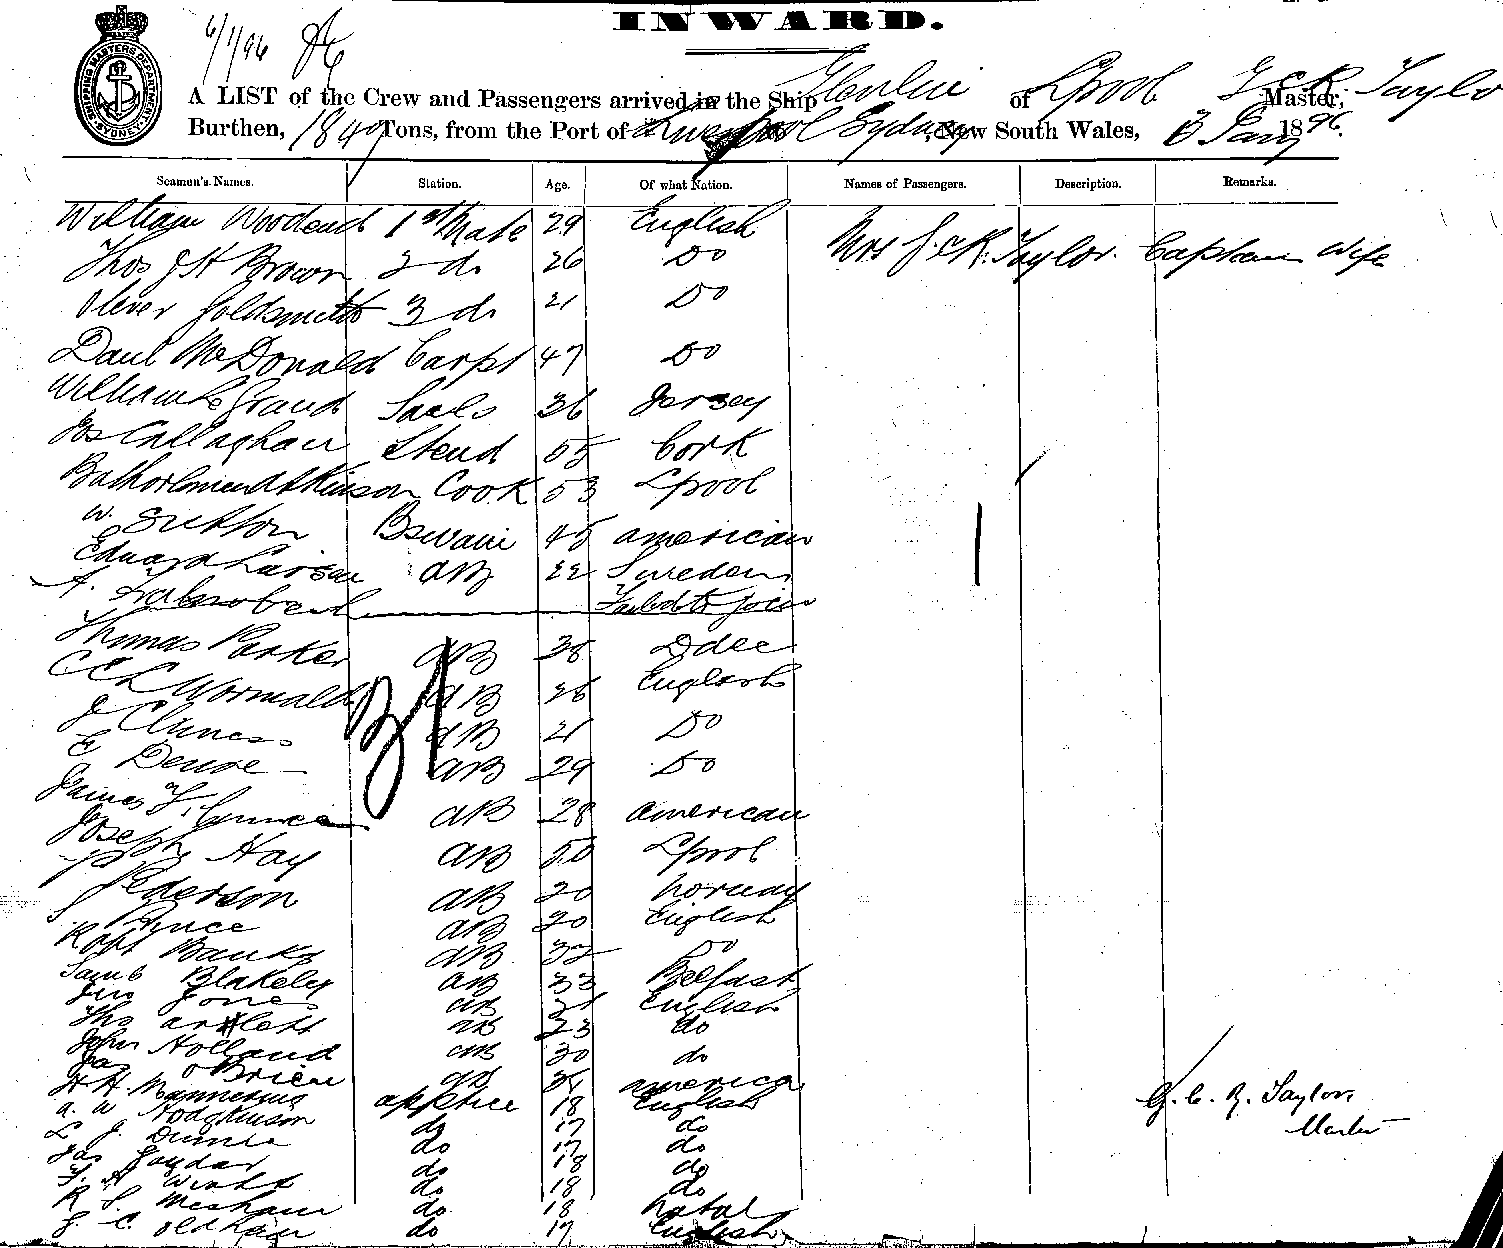 INWARD.
6/1/96
SHIPPING MASTERS DEPARTMENT SYDNEY
A LIST of the Crew and Passengers arrived in the Ship of Lpool J C R Taylor Master,
Burthen, 1840 Tons, from the Port of Liverpool Sydney, New South Wales, 3 Jany 1896.
Seamen's Names. Station. Age. Of what Nation. Names of Passengers. Description. Remarks.
William Woodend 1st Mate 29 English
Mrs J. C R. Taylor. Captain Wife
Thos J H Brown 2 do 26 Do
Oliver Goldsmith 3 do 21 Do
Danl McDonald Carpt 47 Do
William Le Grand Sails 36 Jersey
Jas Callaghan Steud 55 Cork
Atkinson Cook 53 Lpool
W. Sutton Bswain 45 american
Edward Larsen AB 22 Sweden
A. Failed to join
Thomas Parker AB 38 Ddee
C E L Wormald AB 26 English
J Cluness AB 21 Do
E AB 29 Do
James F. AB 28 american
Joseph Hay AB 50 Lpool
P Pederson AB 20 Norway
S. Prince AB 20 English
Robt Banks AB 32 Do
Saml Blakeley AB 33 Belfast
Jno Jones AB English
Tho artlett AB 23 do
John Holland AB 30 do
Jas O'Brien AB america
H H. Mannering apptice 18 English
a. W Hodgkinson do 17 do
L J. do 17 do
Jas do 18 do
F. A Wirtt do 18 do
R S. Mesham do 18 Natal
J. C. Oldham do 17 English
J. C. R. Taylor
Master